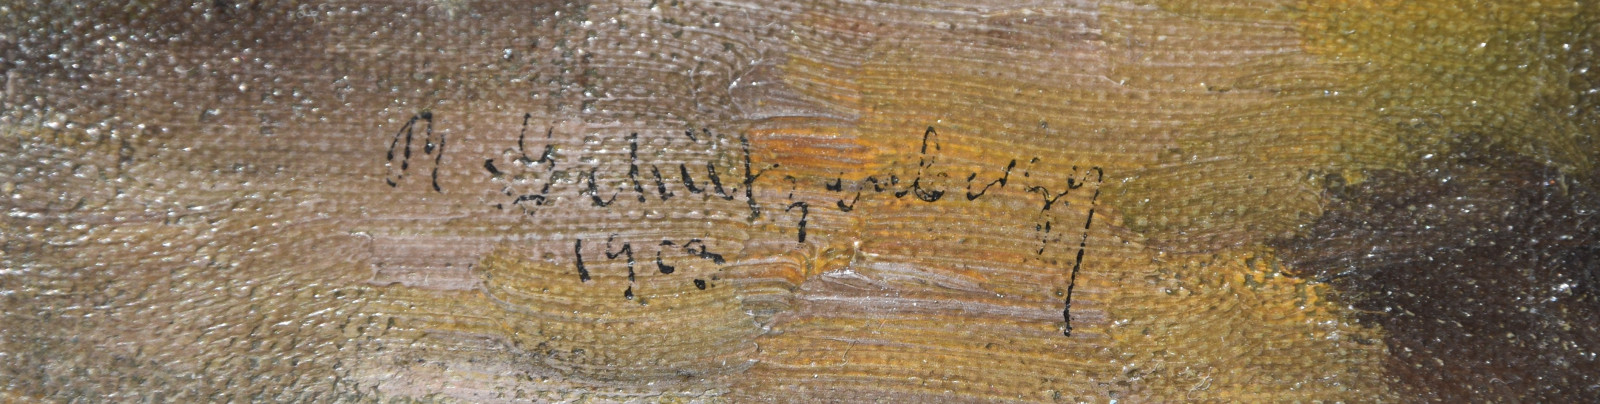 M Schützenberg
1908